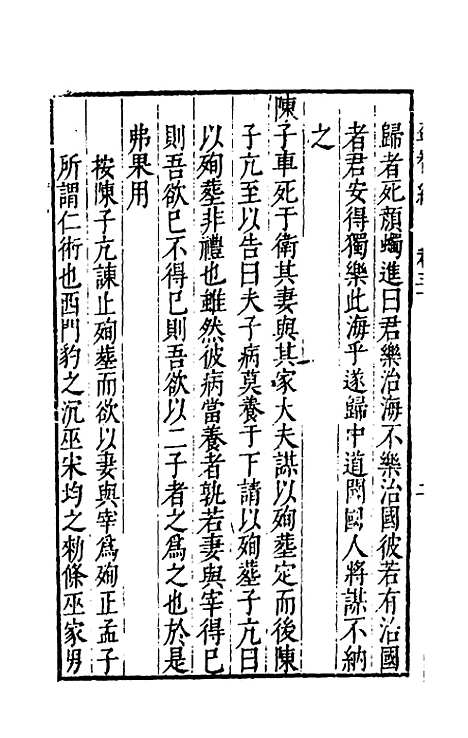 歸者死顔蠋進曰君樂治海不樂治國彼若有治國
者君安得獨樂此海乎遂歸中道聞國人將謀不納
之
陳子車死于衛其妻與其家大夫謀以殉葬定而後陳
子亢至以告曰夫子病莫養于下請以殉葬子亢曰
以殉葬非禮也雖然彼病當養者孰若妻與宰得已
則吾欲已不得已則吾欲以二子者之爲之也於是
弗果用
按陳子亢諫止殉葬而欲以妻與宰爲殉正孟子
所謂仁術也西門豹之沉巫宋均之勑條巫家男